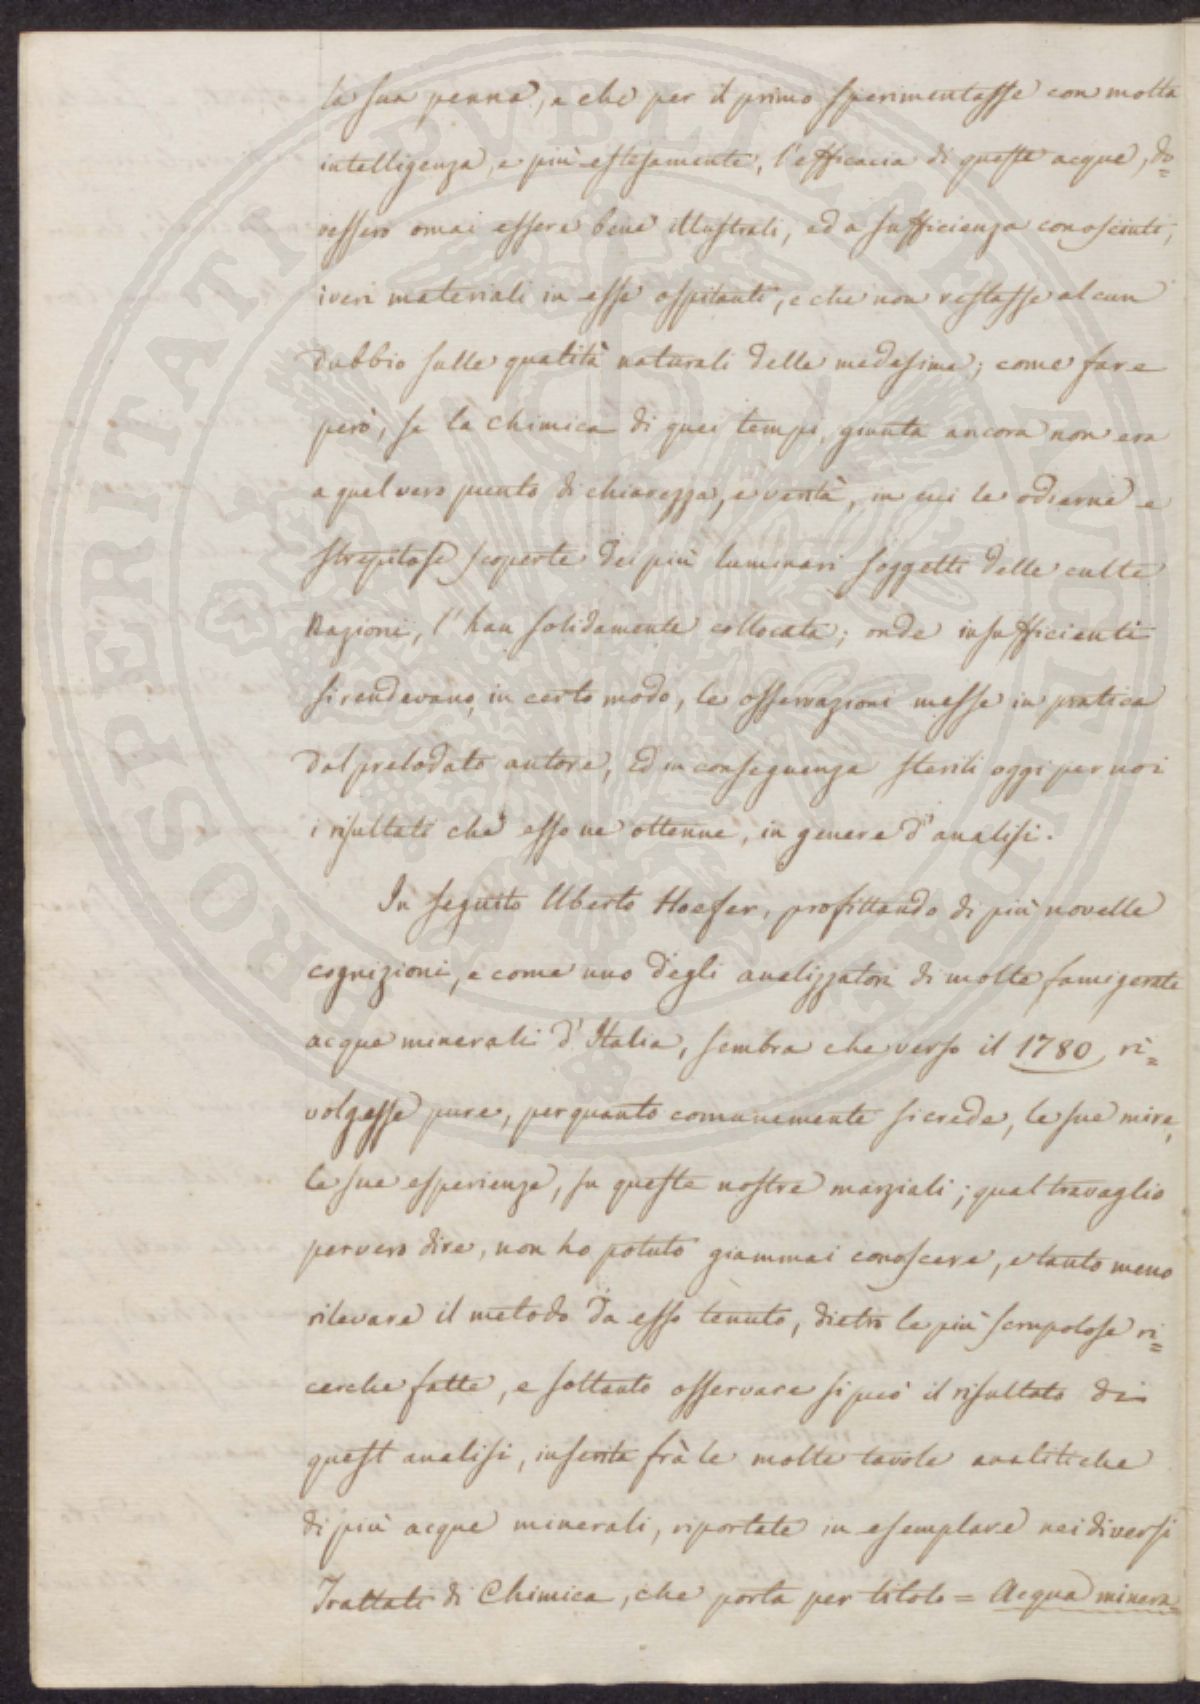 la sua penna, e che per il primo sperimentasse con molta
intelligenza, e più estesamente, l'efficacia di queste acque, do=
vessero omai essere bene illustrati, ed a sufficienza conosciuti,
i veri materiali in esse ospitanti, e che non restasse alcun
dubbio sulle qualità naturali delle medesime; come fare
però, se la chimica di quei tempi, giunta ancora non era
a quel vero punto di chiarezza, e verità, in cui le odierne e
strepitose scoperte dei più luminari soggetti delle culte
Nazioni, l'han solidamente collocata; onde insufficienti
si rendevano, in certo modo, le osservazioni messe in pratica
dal prelodato autore, ed in conseguenza sterili oggi per noi
i risultati che esso ne ottenne, in genere d'analisi.
In seguito Uberto Hoefer, profittando di più novelle
cognizioni, e come uno degli analizzatori di molte famigerate
acque minerali d'Italia, sembra che verso il 1780, ri=
volgesse pure, per quanto comunemente si crede, le sue mire,
le sue esperienze, su queste nostre marziali; qual travaglio
per vero dire, non ho potuto giammai conoscere, e tanto meno
rilevare il metodo da esso tenuto, dietro le più scrupolose ri=
cerche fatte, e soltanto osservare si può il risultato di
quest analisi, inserita frà le molte tavole analitiche
di più acque minerali, riportate in esemplare nei diversi
Trattati di Chimica, che porta per titolo = Acqua minera=
PROSPERITATI PVBLICAE AVGENDAE